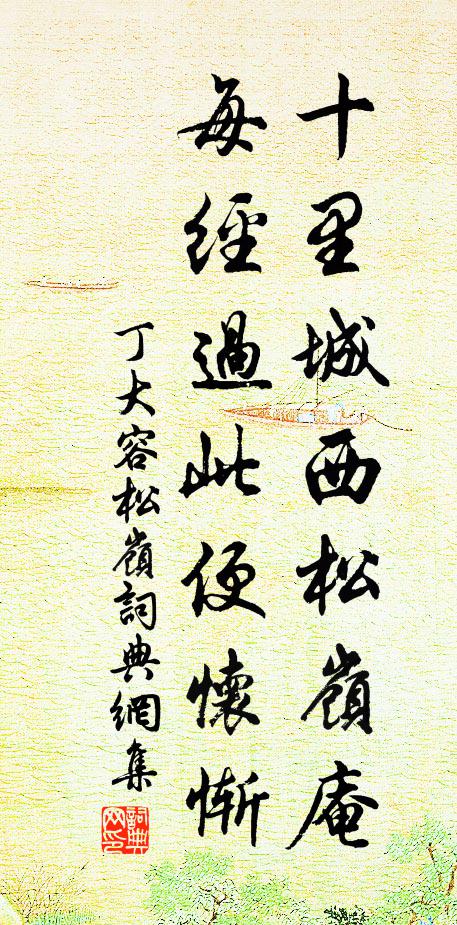 十里城西松嶺庵
每經過此便懷慚
丁大容松嶺詞典網集
詞典网印